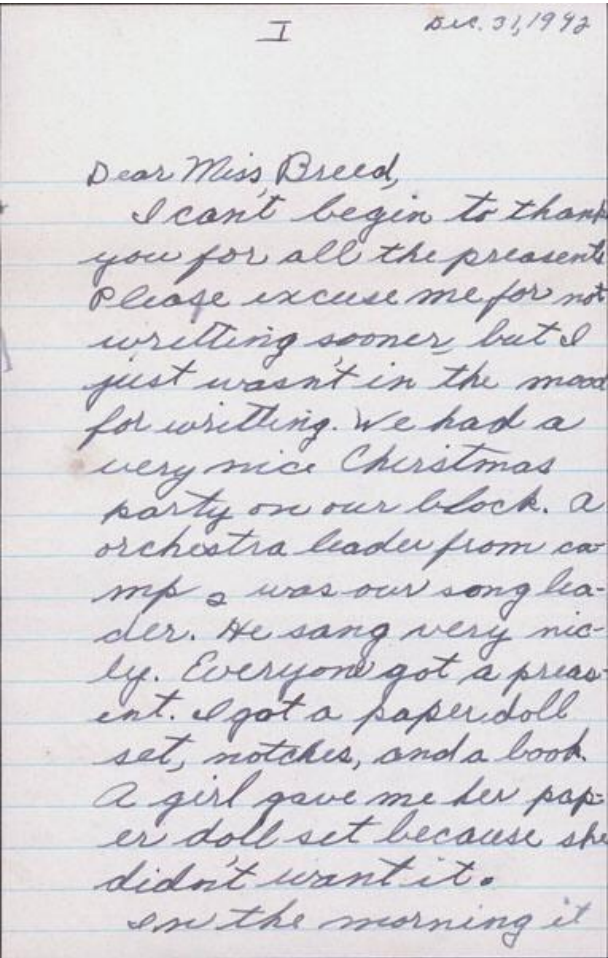 I
Dec. 31, 1942
Dear Miss Breed,
I can't begin to thank
you for all the preasents
Please excuse me for not
writting sooner, but I
just wasn't in the mood
for writting. We had a
very nice Cheristmas
party on our block. A
orchestra leader from ca-
mp 2 was our song lea-
der. He sang very nic-
ly. Everyone got a preas-
ent. I got a paper doll
set, notches, and a book.
A girl gave me her pap-
er doll set because she
didn't want it.
In the morning it